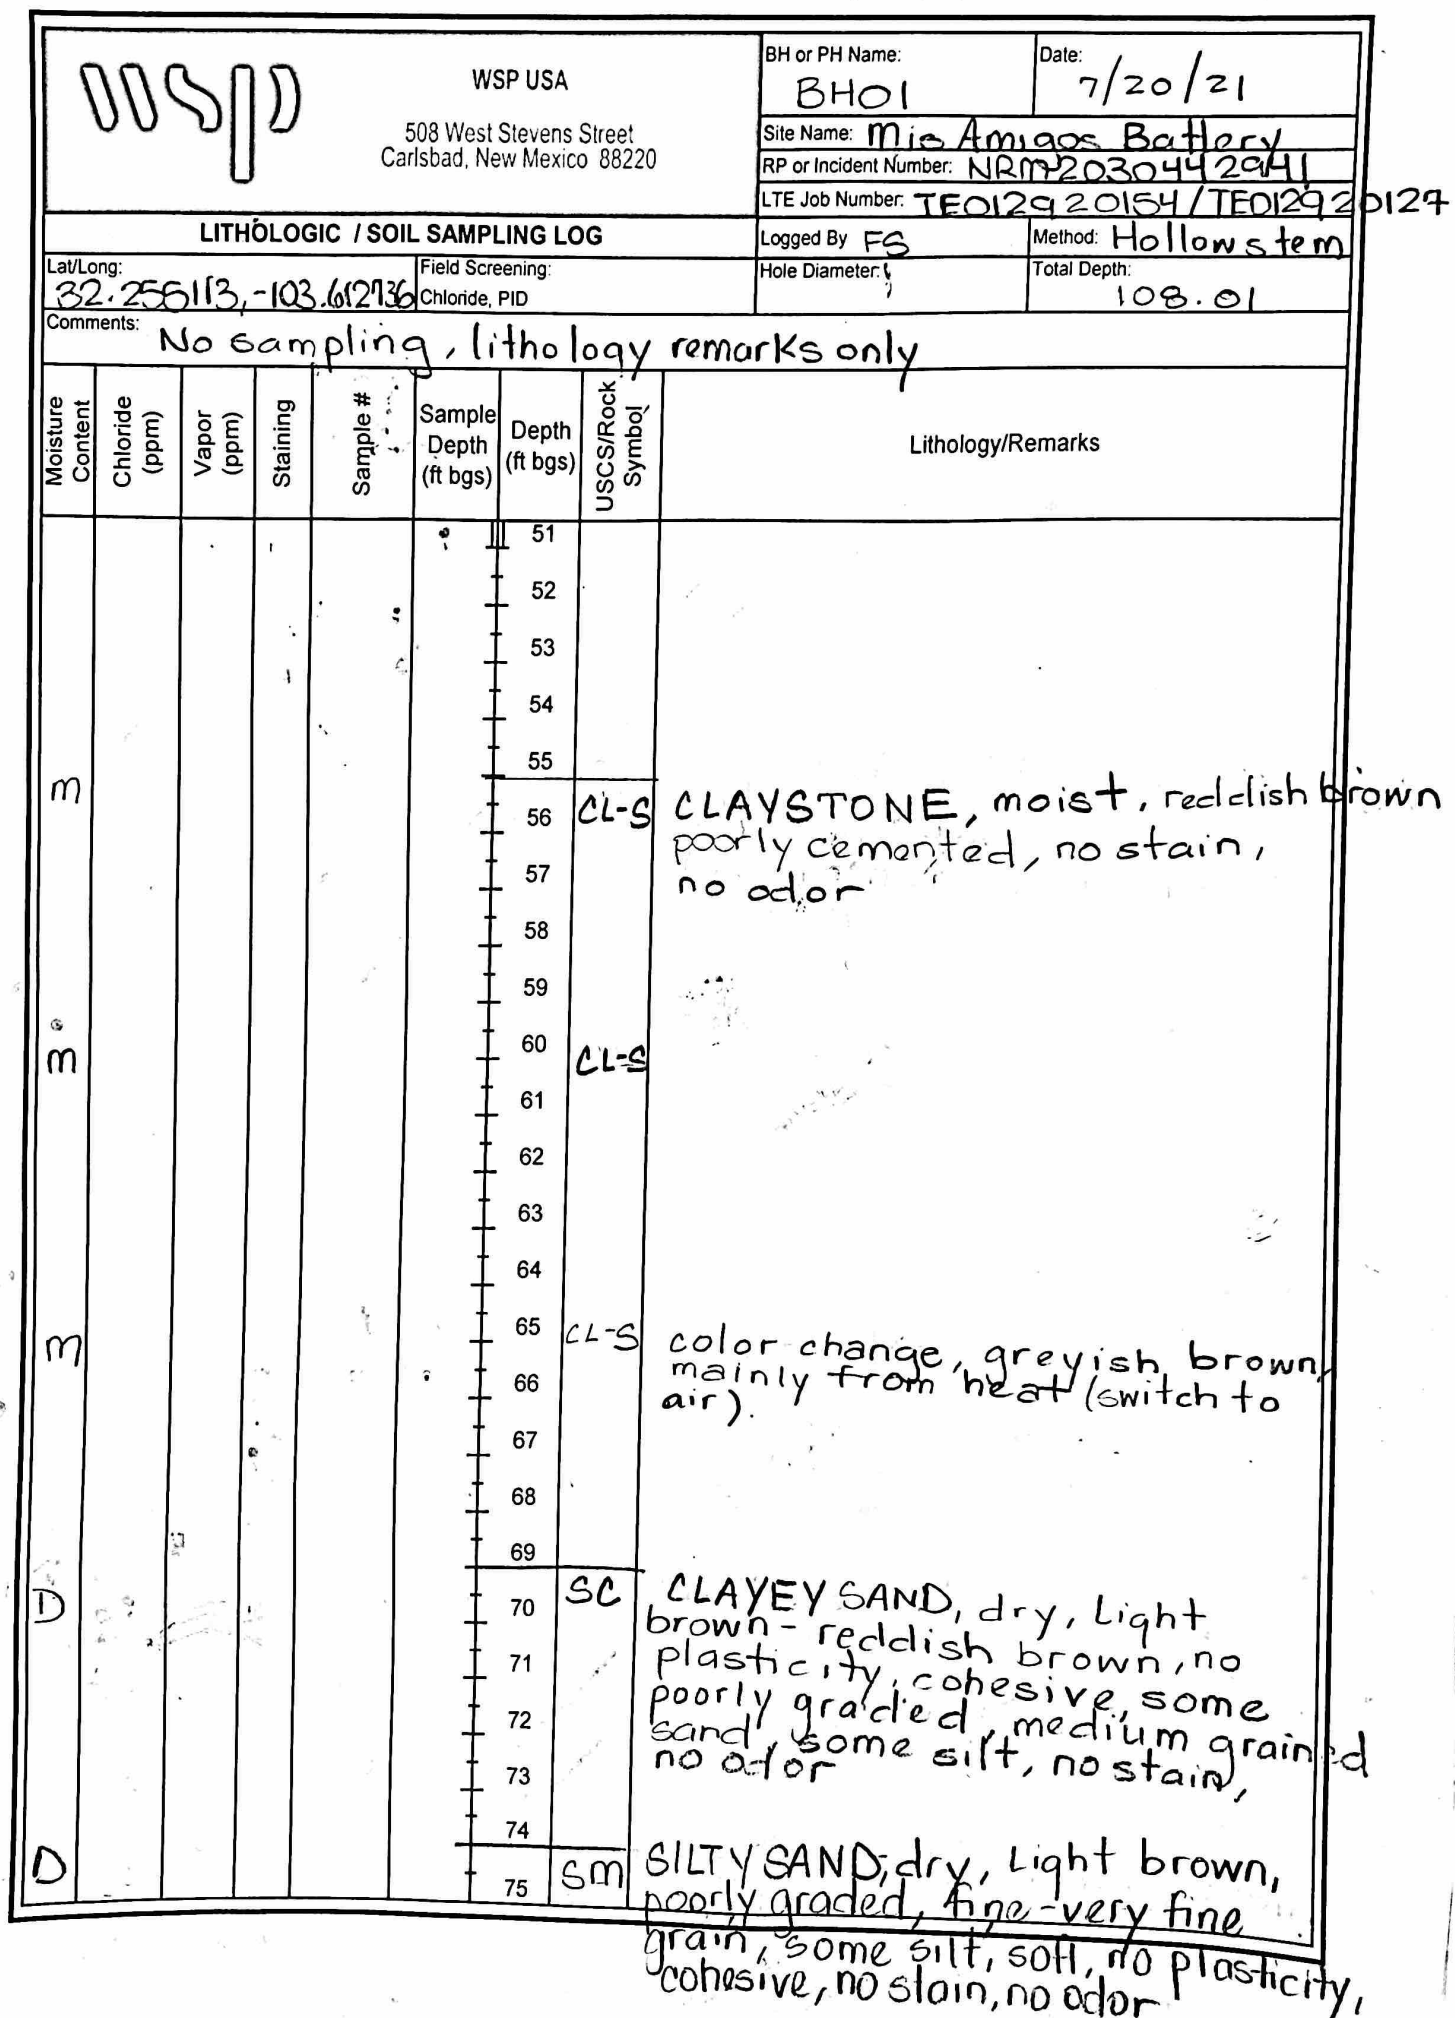 wsp
WSP USA
508 West Stevens Street
Carlsbad, New Mexico 88220
BH or PH Name:
BH01
Date:
7/20/21
Site Name: Mis Amigos Battery
RP or Incident Number: NRM2030442941
LTE Job Number: TE012920154 / TE012920127
LITHOLOGIC / SOIL SAMPLING LOG
Logged By FS
Method: Hollow stem
Lat/Long:
32.255113, -103.612736
Field Screening:
Chloride, PID
Hole Diameter:
Total Depth:
108.01
Comments: No sampling, lithology remarks only
Moisture Content
Chloride (ppm)
Vapor (ppm)
Staining
Sample #
Sample Depth (ft bgs)
Depth (ft bgs)
USCS/Rock Symbol
Lithology/Remarks
51
52
53
54
55
m
56 CL-S CLAYSTONE, moist, reddish brown
poorly cemented, no stain,
57
no odor
58
59
60
m CL-S
61
62
63
64
65
m CL-S color change, greyish brown,
mainly from heat (switch to
66
air).
67
68
69
D 70 SC CLAYEY SAND, dry, Light
brown - reddish brown, no
71
plasticity, cohesive, some
poorly graded, medium grained
72
sand, some silt, no stain,
no odor
73
74
D 75 SM SILTY SAND; dry, Light brown,
poorly graded, fine-very fine
grain, some silt, soft, no plasticity,
cohesive, no stain, no odor